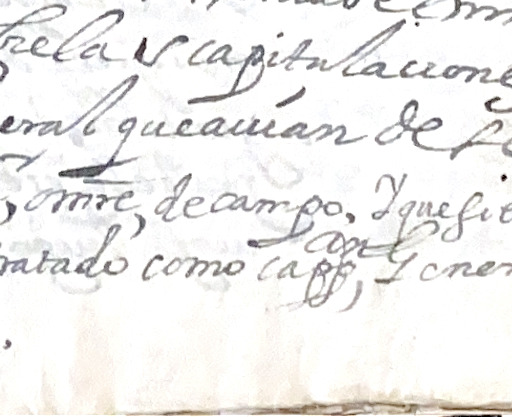 bre las capitulacione
eral que auian de se
, omre, de campo, Y que si
ratado como capp, Y ener